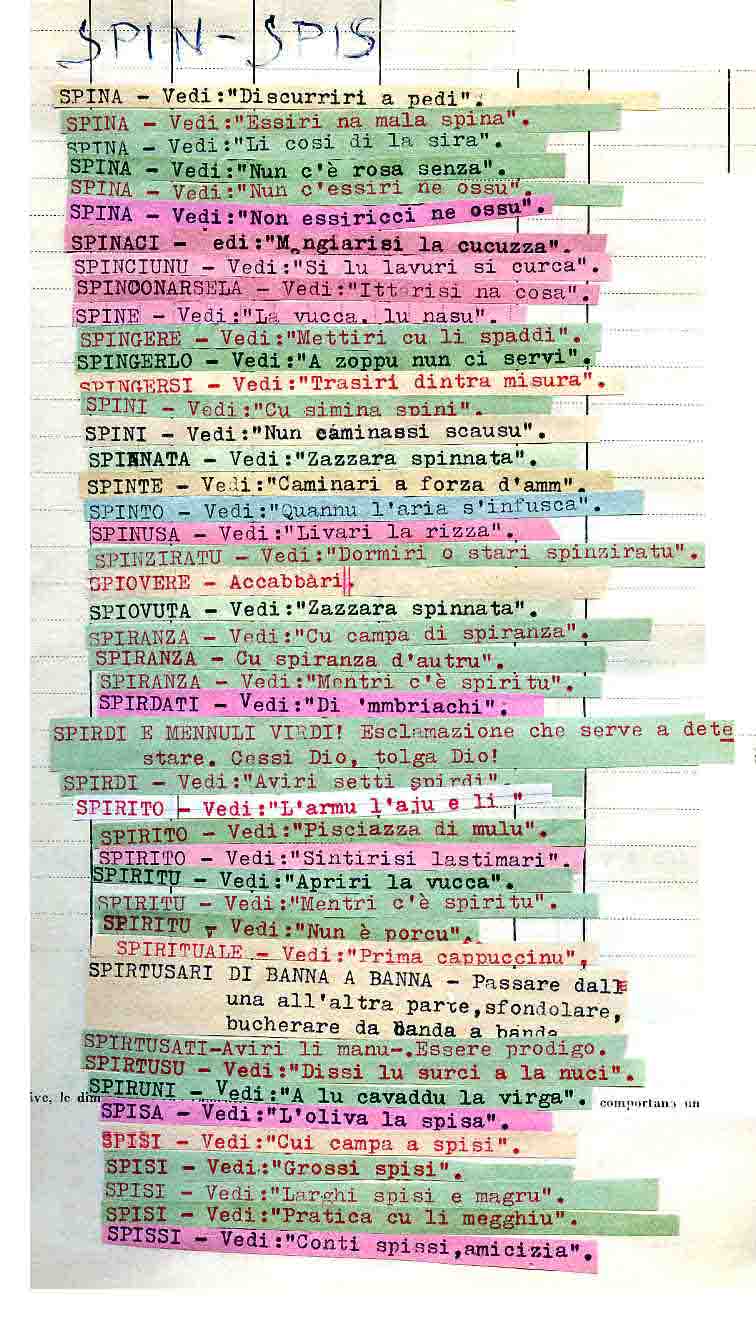 SPIN-SPIS
SPINA - Vedi:"Discurriri a pedi".
SPINA - Vedi:"Essiri na mala spina".
SPINA - Vedi:"Li cosi di la sira".
SPINA - Vedi:"Nun c'è rosa senza".
SPINA - Vedi:"Nun c'essiri ne ossu".
SPINA - Vedi:"Non essiricci ne ossu".
SPINACI - edi:"Mangiarisi la cucuzza".
SPINCIUNU - Vedi:"Si lu lavuri si curca".
SPINCONARSELA - Vedi:"Itterisi na cosa".
SPINE - Vedi:"La vucca, lu nasu".
SPINGERE - Vedi:"Mettiri cu li spaddi".
SPINGERLO - Vedi:"A zoppu nun ci servi".
SPINGERSI - Vedi:"Trasiri dintra misura".
SPINI - Vedi:"Cu simina spini".
SPINI - Vedi:"Nun caminassi scausu".
SPINNATA - Vedi:"Zazzara spinnata".
SPINTE - Vedi:"Caminari a forza d'amm".
SPINTO - Vedi:"Quannu l'aria s'infusca".
SPINUSA - Vedi:"Livari la rizza".
SPINZIRATU - Vedi:"Dormiri o stari spinziratu".
SPIOVERE - Accabbàri.
SPIOVUTA - Vedi:"Zazzara spinnata".
SPIRANZA - Vedi:"Cu campa di spiranza".
SPIRANZA - Cu spiranza d'autru".
SPIRANZA - Vedi:"Mentri c'è spiritu".
SPIRDATI - Vedi:"Di 'mmbriachi".
SPIRDI E MENNULI VIRDI! Esclamazione che serve a dete
stare. Cessi Dio, tolga Dio!
SPIRDI - Vedi:"Aviri setti spirdi".
SPIRITO - Vedi:"L'armu l'aju e li "
SPIRITO - Vedi:"Pisciazza di mulu".
SPIRITO - Vedi:"Sintirisi lastimari".
SPIRITU - Vedi:"Apriri la vucca".
SPIRITU - Vedi:"Mentri c'è spiritu".
SPIRITU - Vedi:"Nun è porcu".
SPIRITUALE - Vedi:"Prima cappuccinu",
SPIRTUSARI DI BANNA A BANNA - Passare dall
una all'altra parte,sfondolare,
bucherare da banda a banda
SPIRTUSATI-Aviri li manu-.Essere prodigo.
SPIRTUSU - Vedi:"Dissi lu surci a la nuci".
SPIRUNI - Vedi:"A lu cavaddu la virga".
ive, le dim comportano un
SPISA - Vedi:"L'oliva la spisa".
SPISI - Vedi:"Cui campa a spisi".
SPISI - Vedi:"Grossi spisi".
SPISI - Vedi:"Larghi spisi e magru".
SPISI - Vedi:"Pratica cu li megghiu".
SPISSI - Vedi:"Conti spissi,amicizia".